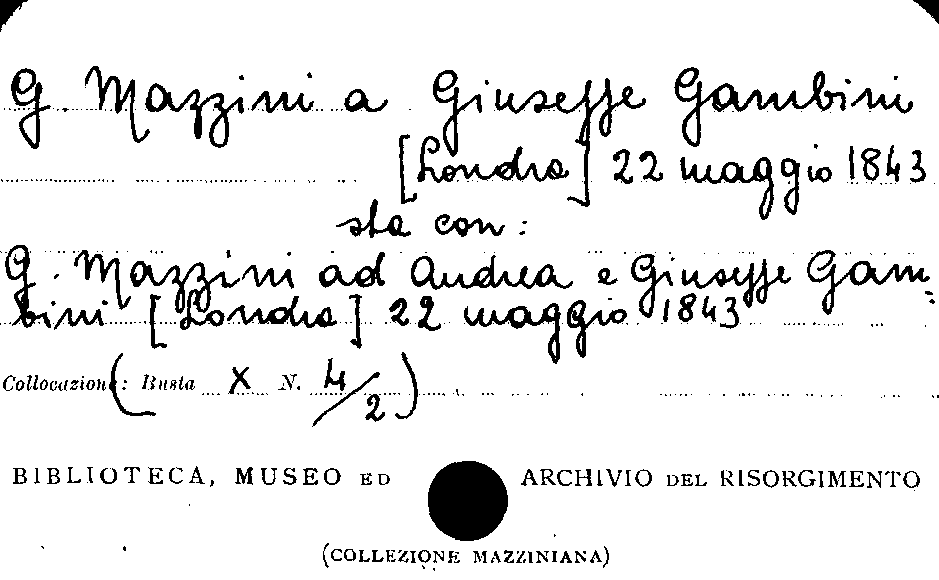 G. Mazzini a Giuseppe Gambini
[Londra] 22 maggio 1843
sta con:
G. Mazzini ad Andrea e Giuseppe Gam=
bini [Londra] 22 maggio 1843
Collocazione: (Busta X N. 4/2)
BIBLIOTECA, MUSEO ED ARCHIVIO DEL RISORGIMENTO
(COLLEZIONE MAZZINIANA)